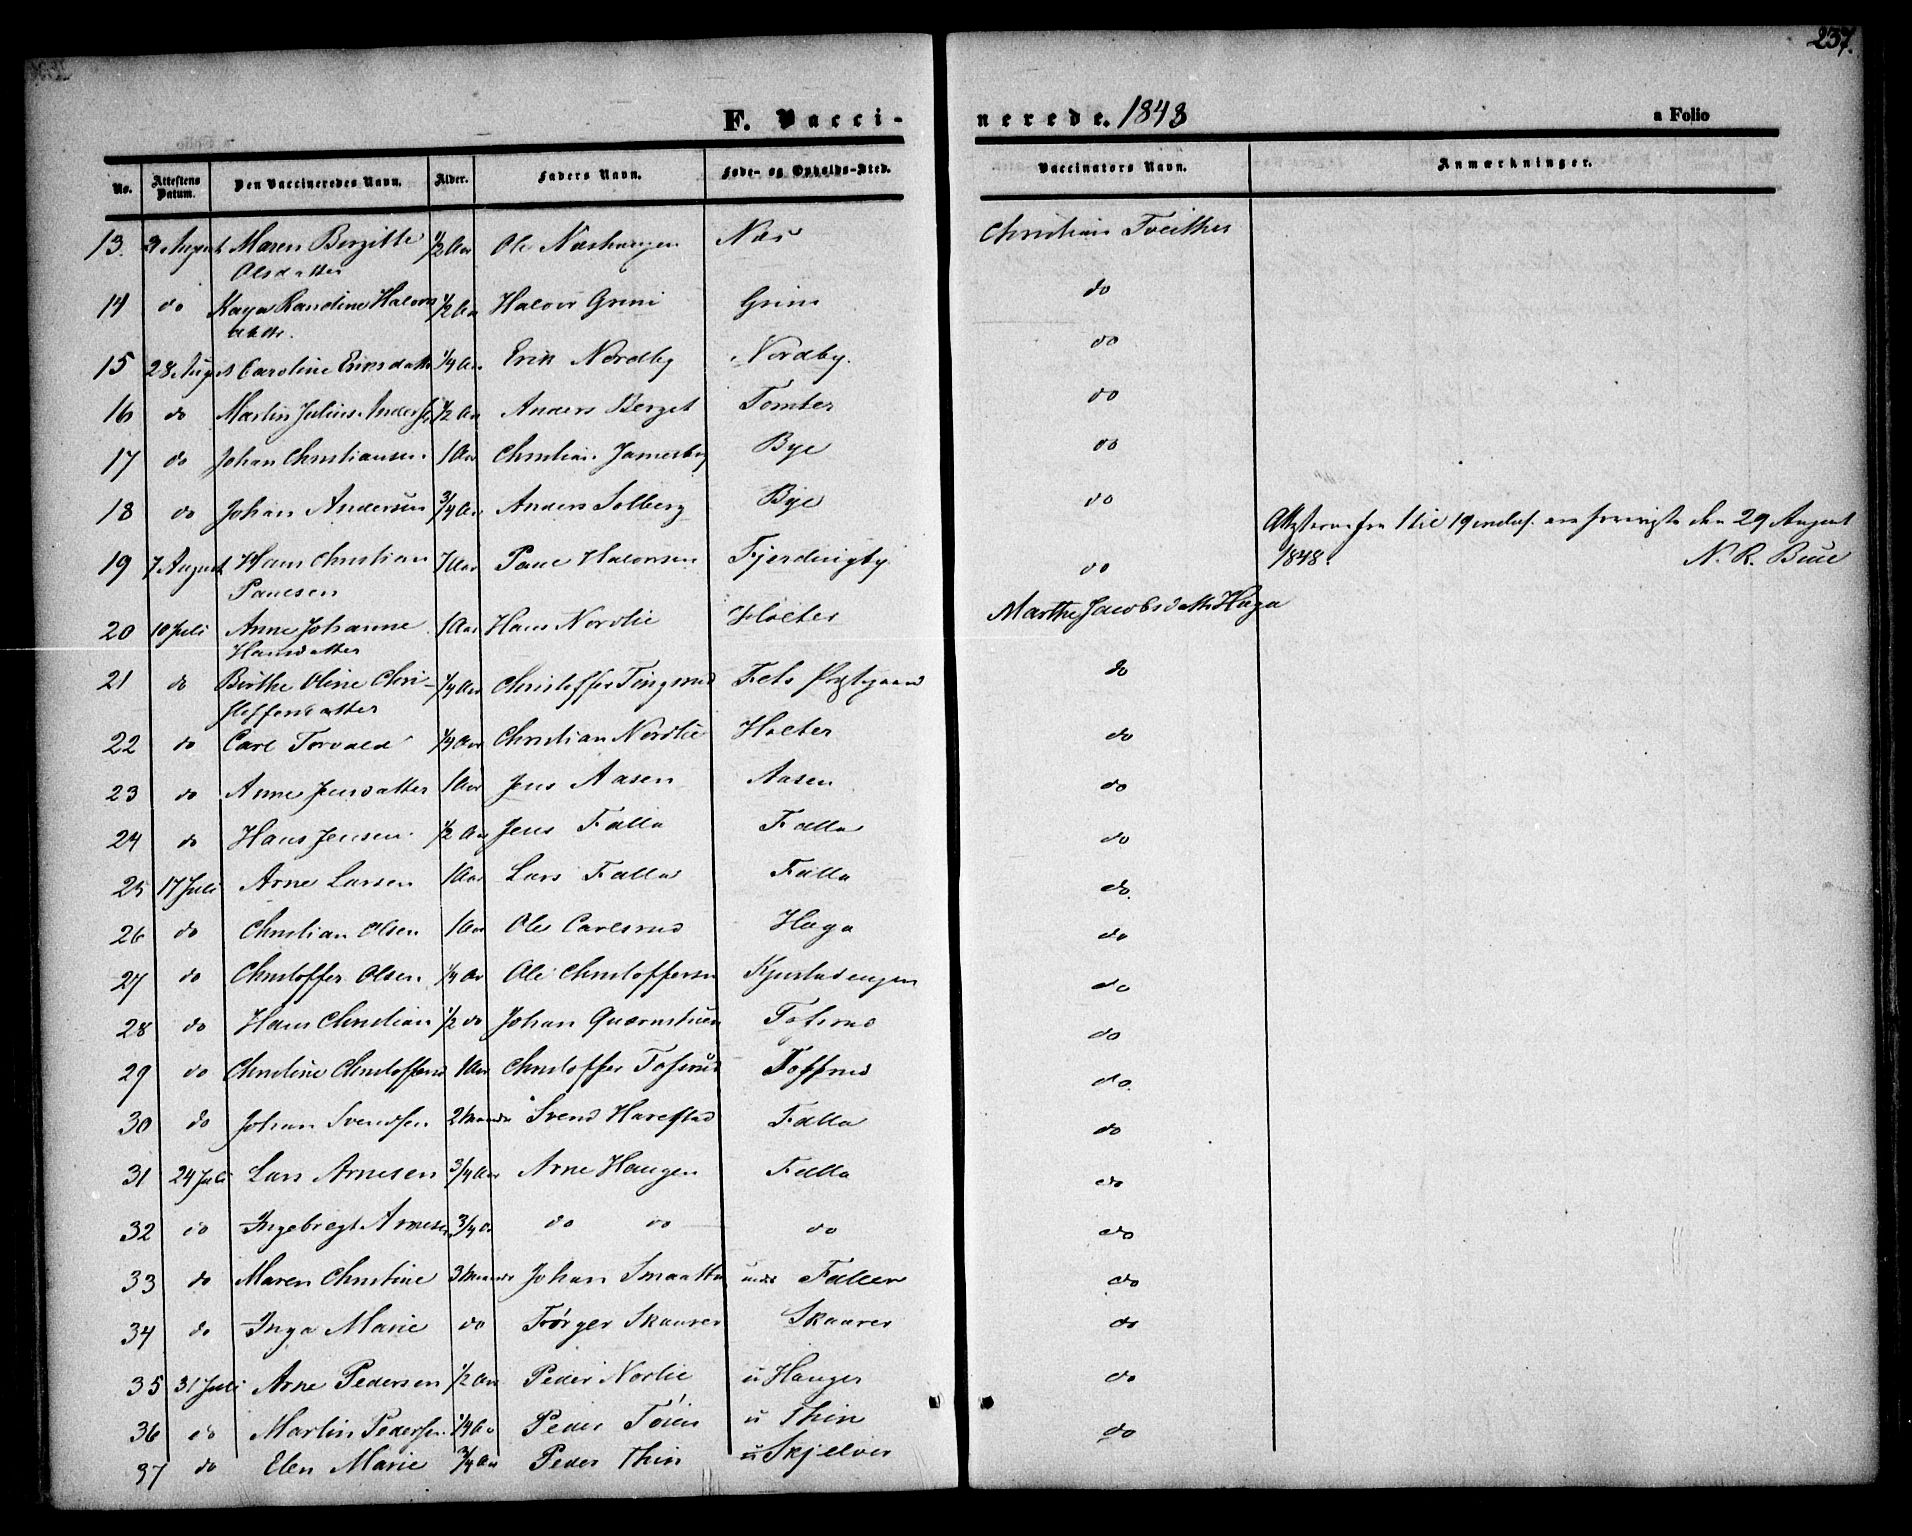 237.
F. Vaccinerede. 1848 a Folio
No. Attestens Datum. Den Vaccineredes Navn. Alder. Faders Navn. Føde- og Opholds-Sted. Vaccinators Navn. Anmærkninger.
13. 3 August Maren Birgitte Olsdatter 1/2 Aar Ole Næshaugen Næs Christian Tveither
14 do Kaya Randine Halvorsdattr. 1/2 Aar Halvor Grini Grini do
15 28 August Caroline Eriksdatter 1/4 Aar Erik Nordby Nordby. do
16 do Martin Julius Andersen 1/2 Aar Anders Berget Tomter do
17 do Johan Christiansen 1 Aar Christian Jamesby Bye do
18 do Johan Andersen 3/4 Aar Anders Solberg Bye do
Attesterne fra 1 til 19 inclus. ere den 29 August 1848. N. R. Bull
19 7 August Hans Christian Paulsen 1 Aar Paul Halvorsen Fjerdingby do
20 10 Juli Anne Johanne Hansdatter 1 Aar Hans Nordlie Holter Marthe Jacobsdattr Haga
21 do Birthe Oline Christoffersdatter 1/4 Aar Christoffer Tingsrud Fets Præstegaard do
22 do Carl Torvald 1/4 Aar Christian Nordlie Holter do
23 do Anne Jensdatter 1 Aar Jens Aasen Aasen do
24 do Hans Jensen 1/2 Aar Jens Falla Falla do
25 17 Juli Arne Larsen 1 Aar Lars Falla Falla do.
26 do Christian Olsen 1 Aar Ole Carlsrud Haga do
27 do Christoffer Olsen 1/4 Aar Ole Christoffersen Kjustadengen do
28 do Hans Christian 1/2 do Johan Quernstuen Tofsrud do
29 do Christine Christoffersd 1 Aar Christoffer Tofsrud Toffsrud do.
30 do Johan Svendsen 2 Maaneder Svend Harestad Falla do
31 24 Juli Lars Arnesen 3/4 Aar Arne Haugen Falla do
32 do Ingebregt Arnesen 3/4 Aar do do do do
33 do Maren Christine 3 Maaneder Johan Smaatta under Faller do
34 do Inga Marie do Torger Skaarer Skaarer do
35 31 Juli Arne Pedersen 1/2 Aar Peder Norlie u Hauger do
36 do Martin Pedersen 1/4 Aar Peder Tøien u Thin do
37 do Elen Marie 3/4 Aar Peder Thin u Skjelver